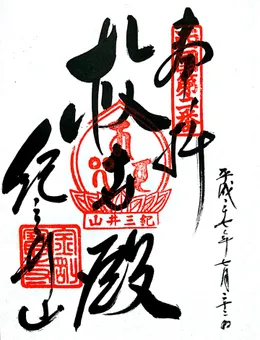 西国第二番
奉拝
平成二十三年七月
救世殿
紀三井山
紀三井山